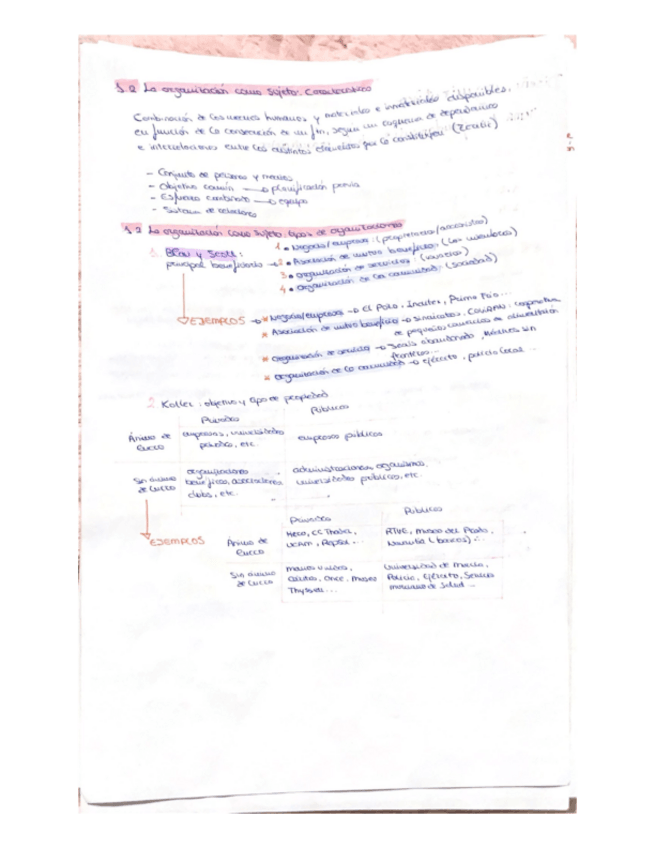 1.2 La organización como sujeto. Características
Combinación de los medios humanos y materiales e inmateriales disponibles,
en función de la consecución de un fin, según un esquema de dependencia
e interrelaciones entre los distintos elementos que la constituyen
- Conjunto de personas y medios
- Objetivo común → planificación previa
- Esfuerzo combinado → equipo
- Sistema de relaciones
1.2 La organización como sujeto. tipos de organizaciones
1. Blau y Scott:
principal beneficiario →
1 • Negocio/empresa: (propietarios/accionistas)
2 • Asociación de mutuo beneficio: (los miembros)
3 • organización de servicios: (usuarios)
4 • Organización de la comunidad: (sociedad)
EJEMPLOS →
* Negocio/empresa → El Pozo, Inditex, Primo Frío...
* Asociación de mutuo beneficio → sindicatos, cooperativa
de pequeños comercios de alimentación
* Organización de servicio → Jesús abandonado, Médicos sin
fronteras...
* Organización de la comunidad → ejército, policía local...
2. Kotler: objetivo y tipo de propiedad
Privados Públicos
Ánimo de lucro empresas, universidades privadas, etc. empresas públicas
Sin ánimo de lucro organizaciones benéficas, asociaciones, clubs, etc. administraciones, organismos, universidades públicas, etc.
EJEMPLOS
Privados Públicos
Ánimo de lucro Hero, CC Thader, UCAM, Repsol... RTVE, Museo del Prado, (bancos)...
Sin ánimo de lucro Manos Unidas, Cáritas, Once, Museo Thyssen... Universidad de Murcia, Policía, Ejército, Servicio murciano de Salud...